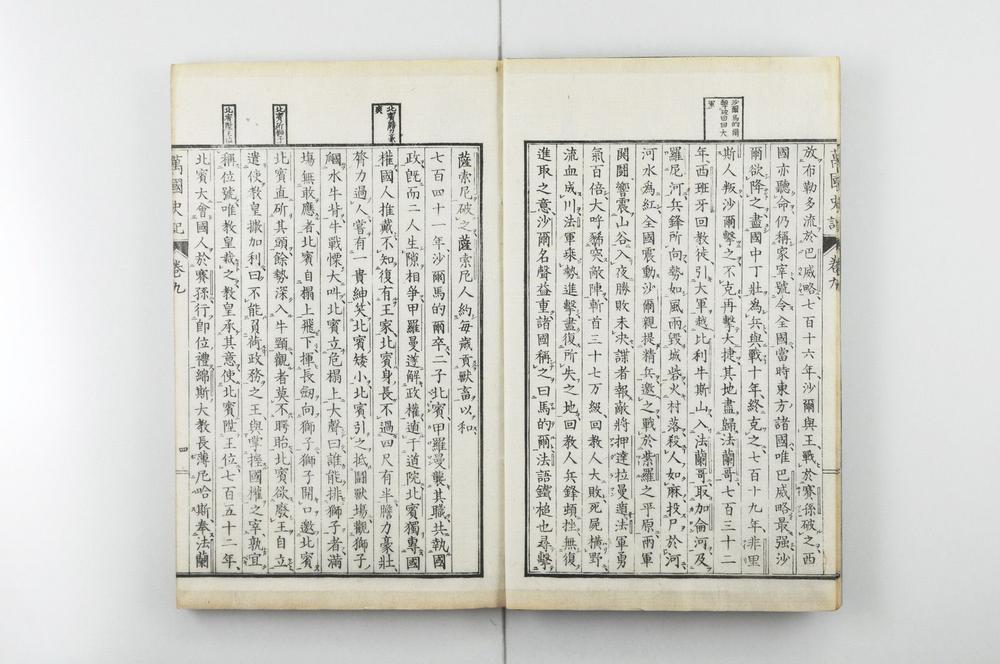 沙爾馬的爾
擊破回回大
軍
放布勒多流於巴威略七百十六年沙爾與王戰於賽孫破之西
國亦聽命仍稱家宰號令全國當時東方諸國唯巴威略最强沙
爾欲降之盡國中丁壯為兵與戰十年終克之七百十九年非里
斯人叛沙爾擊之不克再擊大捷其地盡歸法蘭哥七百三十二
年西班牙回教徒引大軍越比利牛斯山入法蘭哥取加侖河及
羅尼河兵鋒所向勢如風雨毀城砦火村落殺人如麻投尸於河
河水為紅全國震動沙爾親提精兵邀之戰於紫羅之平原兩軍
鬨鬪響震山谷入夜勝敗未決諜者報敵將押達拉曼遁法軍勇
氣百倍大呼豨突敵陣斬首三十七万級回教人大敗死屍橫野
流血成川法軍乘勢進擊盡復所失之地回教人兵鋒頓挫無復
進取之意沙爾名聲益重諸國稱之曰馬的爾法語鐵槌也尋擊
萬國史記 卷九
北賓膽力豪
爽
北賓斫獅子
北賓陞王位
薩索尼破之薩索尼人約每歲貢獻畜以和
七百四十一年沙爾馬的爾卒二子北賓甲羅曼襲其職共執國
政既而二人生隙相爭甲羅曼遂解政權遁于道院北賓獨專國
權國人推戴不知復有王家北賓身長不過四尺有半膽力豪壯
膂力過人嘗有一貴紳笑北賓矮小北賓引之抵鬪獸場觀獅子
齧水牛背牛戰慄大吽北賓立危榻上大聲曰誰能排獅子者滿
場無敢應者北賓自榻上飛下揮長劔向獅子獅子開口邀北賓
北賓直斫其頭餘勢深入牛頸觀者莫不瞪眙北賓欲廢王自立
遣使教皇撒加利曰不能負荷政務之王與掌握國權之宰孰宜
稱位號唯教皇裁之教皇承其意使北賓陞王位七百五十二年
北賓大會國人於賽孫行即位禮綿斯大教長薄尼哈斯奉法蘭
萬國史記 卷九 四